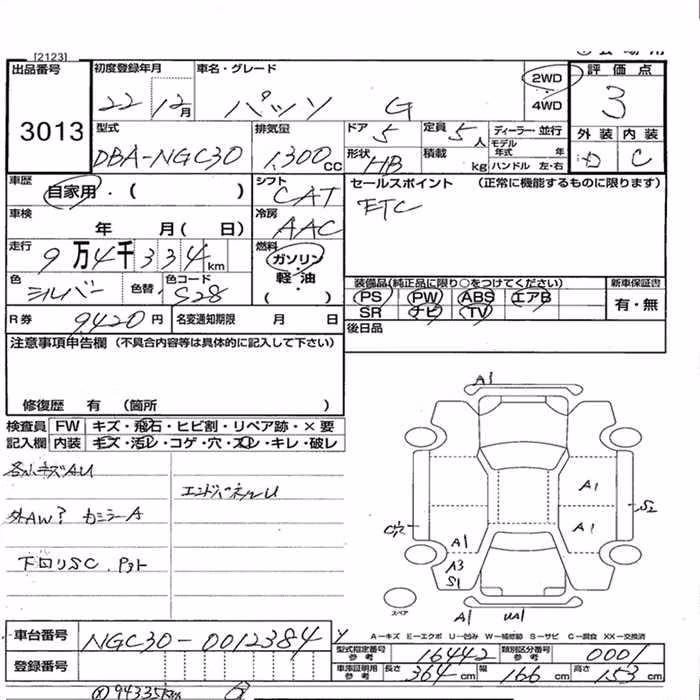 [2123]
出品番号
3013
初度登録年月
22 12月
車名・グレード
パッソ G
2WD
4WD
評価点
3
外装 内装
D C
型式
DBA-NGC30
排気量
1,300 CC
ドア 5
定員 5人
ディーラー・並行
モデル年式 年
形状 HB
積載 kg
ハンドル 左・右
車歴
自家用・( )
シフト
CAT
セールスポイント (正常に機能するものに限ります)
ETC
車検
年 月( 日)
冷房
AAC
走行
9万4千334km
燃料
ガソリン
軽・油
( )
色
シルバー
色替
色コード
S28
装備品(純正品に限り○をつけてください)
PS PW ABS エアB
SR ナビ TV
新車保証書
有・無
R券 9420円
名変通知期限 月 日
後日品
注意事項申告欄 (不具合内容等は具体的に記入して下さい)
修復歴 有 (箇所 )
検査員 FW キズ・飛石・ヒビ割・リペア跡・×要
記入欄 内装 キズ・汚レ・コゲ・穴・スレ・キレ・破レ
各小キズAU
エンドパネルU
外AW? カミラーA
下回りSC.
A1
A1
A1
S2
A1
A3
S1
A1
UA1
スペア
A―キズ E―エクボ U―凹み W―補修跡 S―サビ C―腐食 XX―交換済
車台番号
NGC30-0012384
登録番号
型式指定番号 参考 16442
類別区分番号 参考 0001
車庫証明用 参考 長さ 364cm 幅 166cm 高さ 153cm
94335km